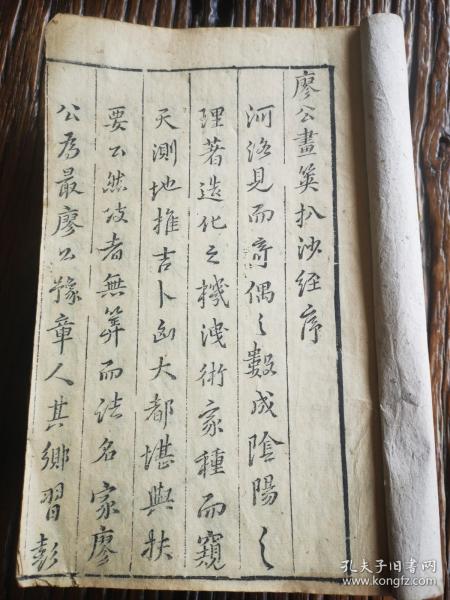 廖公畫筴扒沙经序
河洛見而竒偶之數成陰陽之
理著造化之機洩術家種而窺
天測地推吉卜凶大都堪輿扶
要公然攷者無筭而法名家廖
公為最廖公豫章人其鄉習彭
孔夫子旧书网
www.kongfz.com